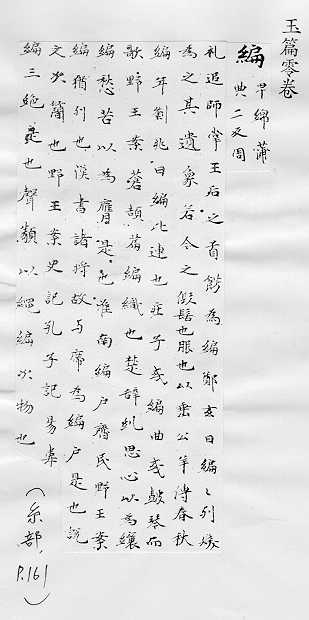 玉篇零卷
編 卑綿蒲
典二反周
礼追師掌王后之首餝為編鄭玄曰編〻列髮
為之其遺象若今之假髻也服也以壺公羊傳春秋
編年劉兆曰編比連也莊子或編曲或鼓琴而
歌野王案蒼頡萹編織也楚辞糺思心以為纕
編愁苦以為膺是也淮南編戶齊民野王案
編猶列也漢書諸將故与帝為編戶是也說
文次簡也野王案史記孔子記易韋
編三絶是也聲類以繩編次物也
(糸部, P.161)